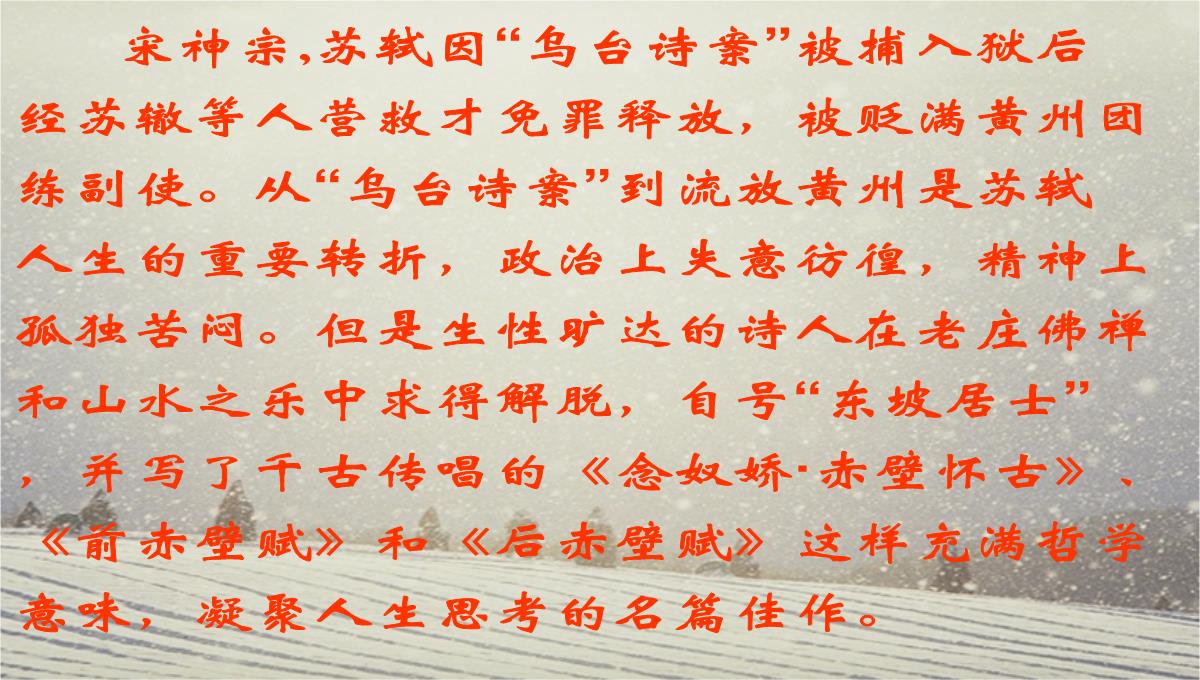 宋神宗,苏轼因“乌台诗案”被捕入狱后
经苏辙等人营救才免罪释放，被贬满黄州团
练副使。从“乌台诗案”到流放黄州是苏轼
人生的重要转折，政治上失意彷徨，精神上
孤独苦闷。但是生性旷达的诗人在老庄佛禅
和山水之乐中求得解脱，自号“东坡居士”
，并写了千古传唱的《念奴娇·赤壁怀古》、
《前赤壁赋》和《后赤壁赋》这样充满哲学
意味，凝聚人生思考的名篇佳作。